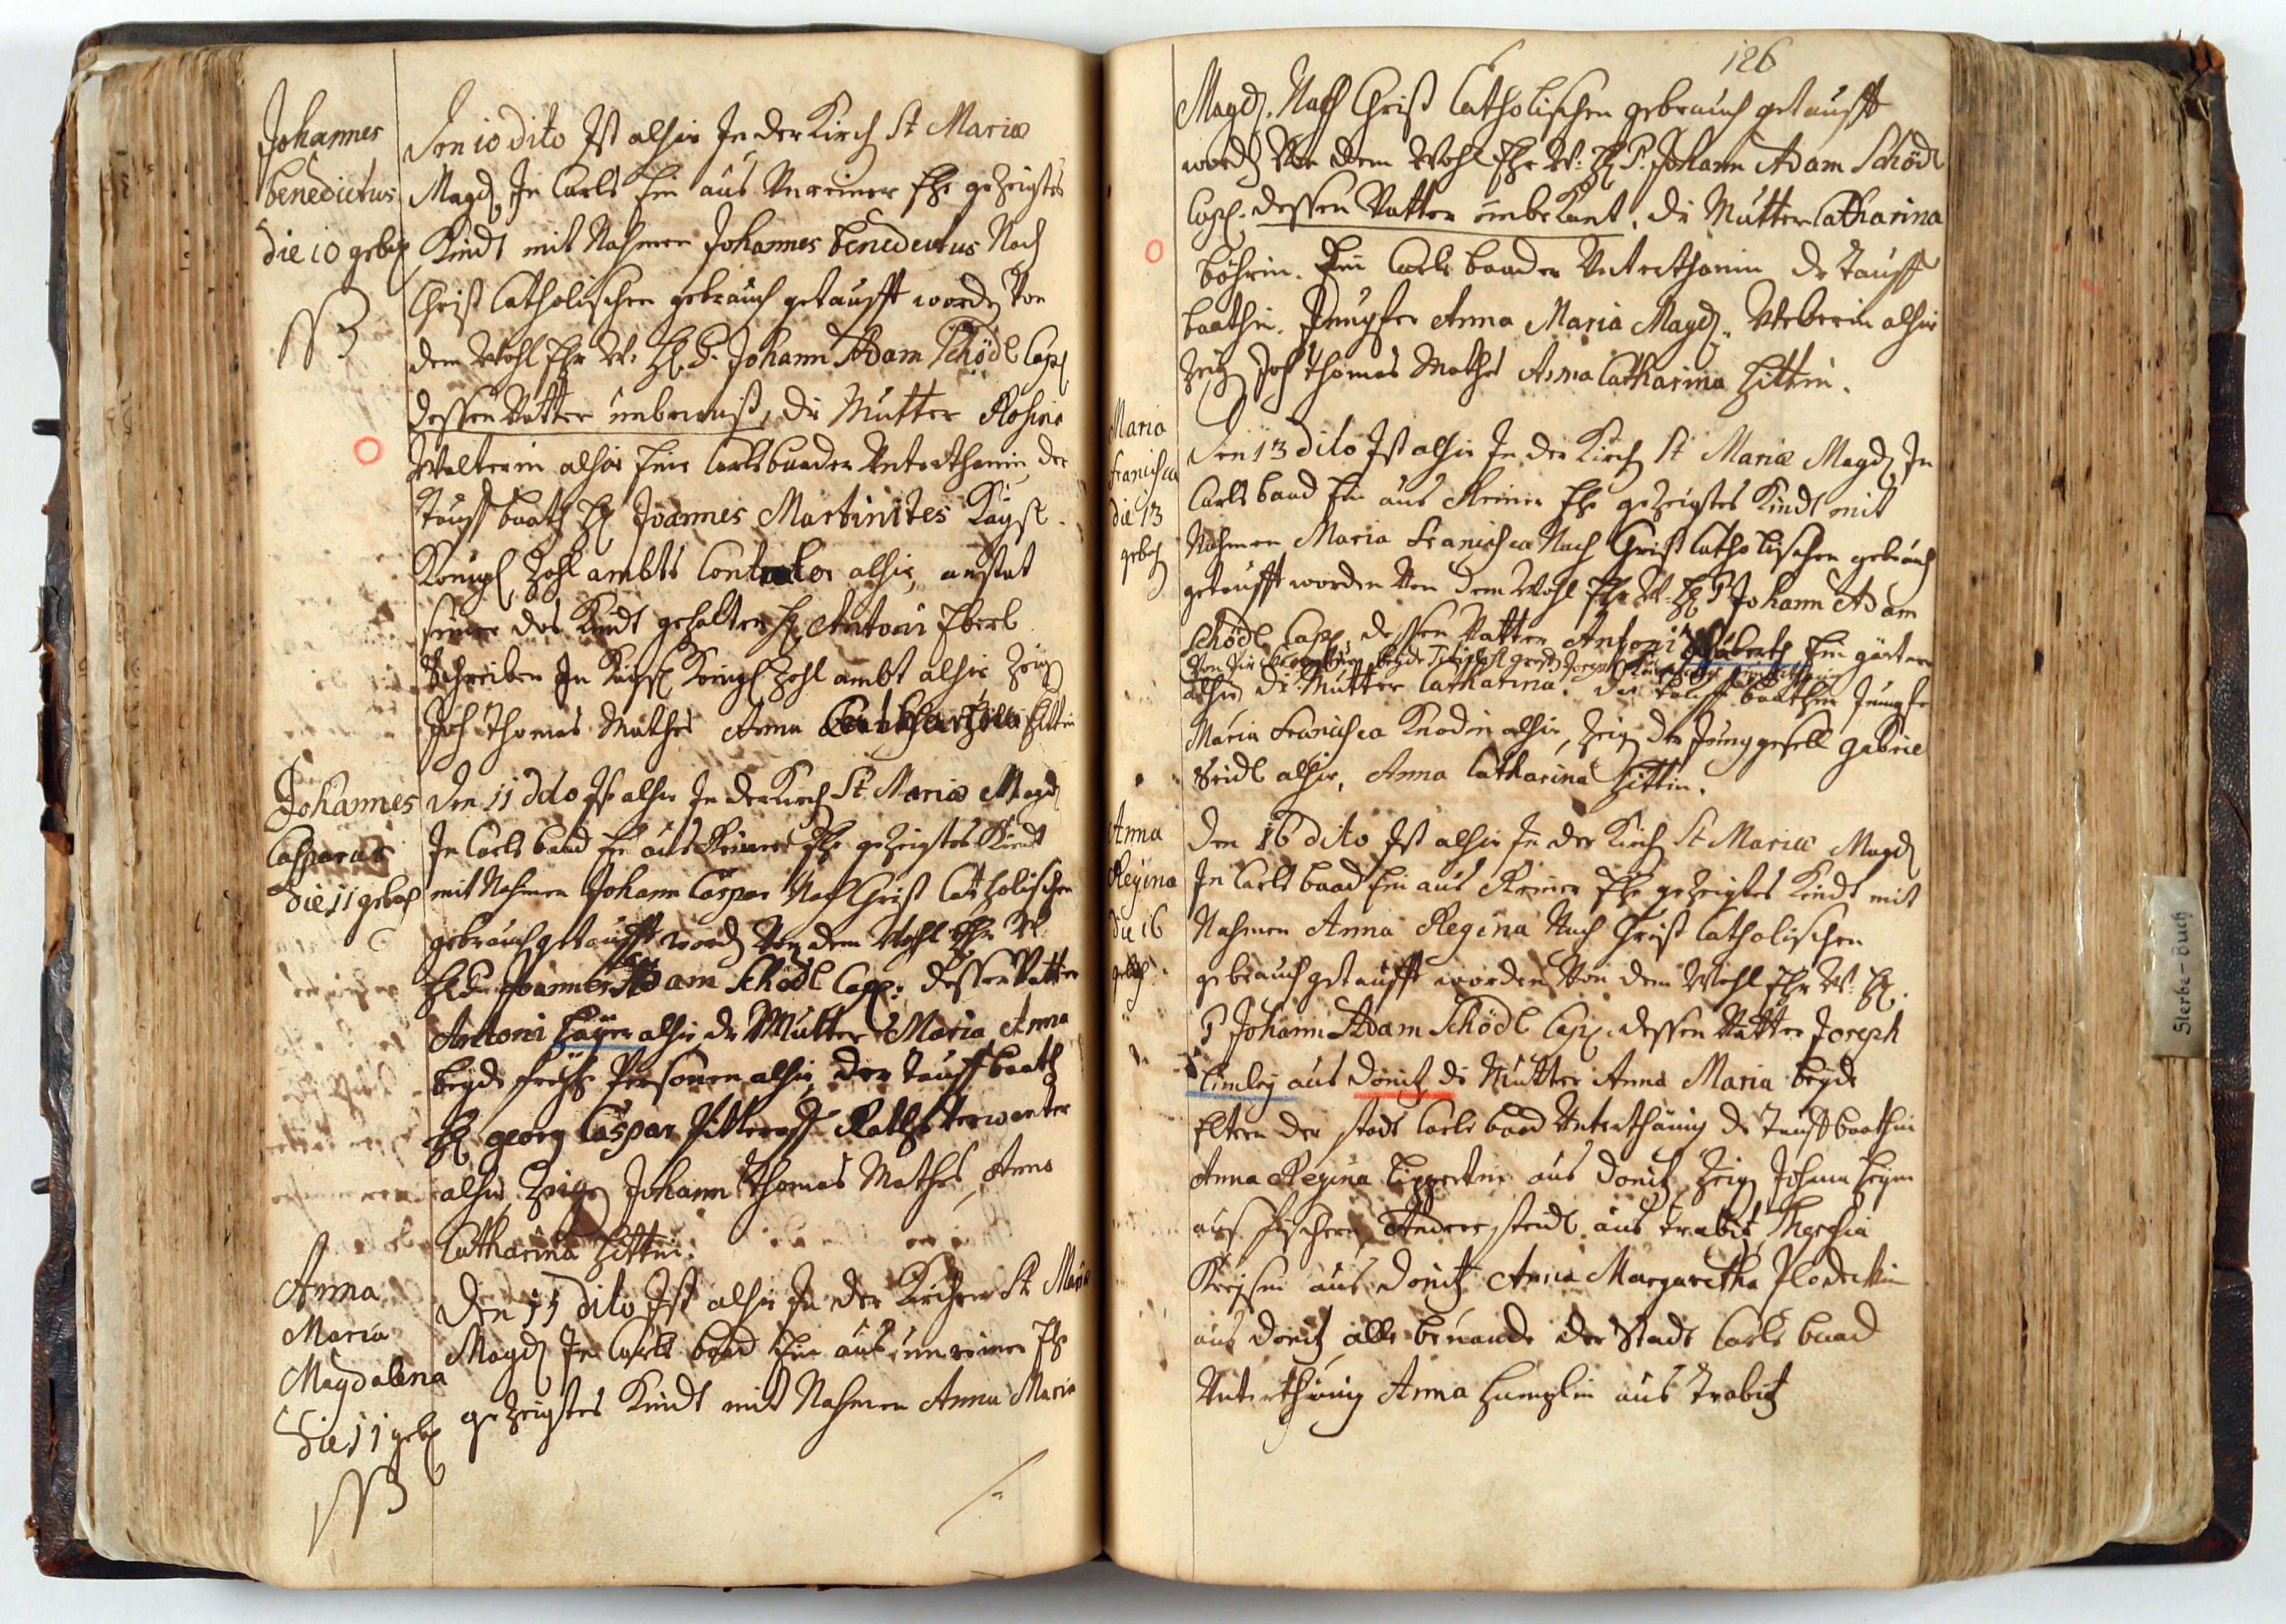 Johannes
benedictus
die 10 geboh
NB
Den 10 dito Ist alhir In der Kirch St Mariæ
Magd. In Carls Ein aus Unreiner Ehe gezeigtes
Kindt mit Nahmen Johannes benedictus Nach
Christ Catholischen gebrauch getaufft worden Von
dem Wohl Ehr W. H. P. Johann Adam Schödl Cap
dessen Vatter unbewust, die Mutter Rosina
Walterin alhir Eine Carlsbaader Unterthanin der
Tauff baath H Joannes Martinites Kaÿsl.
Königl Zohl ambts alhir, anstat
seiner das Kindt gehalten H Antoni Eberl
Schreiber In Kaÿsl Königl Zohl ambt alhir Zeug
Joh Thomas Mathes Anna Catharina Hittin
Johannes
Casparus
die 11 geboh
Den 11 dito Ist alhir In der Kirch St Mariæ Magd
In Carls baad Ein aus Reiner Ehe gezeigtes Kindt
mit Nahmen Johann Caspar Nach Christ Catholischen
gebrauch getaufft word Von dem Wohl Ehr W.
H P. Joannes Adam Schödl Cap: dessen Vatter
Antoni Haÿer alhir die Mutter Maria Anna
beÿde Personen alhir, der Tauff baath
H georg Caspar Raths Verwanter
alhir, Zeugen Johann Thomas Mathes, Anna
Catharina Hittin.
Anna
Maria
Magdalena
die 11 geboh
NB
Den 11 dito Ist alhir In der Kirchen St Mariæ
Magd In Carls baad Ein aus unreiner Ehe
gezeigtes Kindt mit Nahmen Anna Maria
126
Magd. Nach Christ Catholischen gebrauch getaufft
word Von dem Wohl Ehr W: H P. Johann Adam Schödl
Cap: dessen Vatter unbekant, die Mutter Catharina
böhrin. Ein Carls baader Unterthanin die Tauff
baathin. Jungfer Anna Maria Magd. Weberin alhir
Zeug Joh Thomas Mathes Anna Catharina Hittin.
Maria
Francisca
die 13
geboh
Den 13 dito Ist alhir In der Kirch St Mariæ Magd In
Carls baad Ein aus Reiner Ehe gezeigtes Kindt mit
Nahmen Maria Francisca Nach Christ Catholischen gebrauch
getaufft worden Von dem Wohl Ehr W. H P Johann Adam
Schödl Cap, dessen Vatter Antoni Ein gärtner
alhir die Mutter Catharina. die Tauff baathin Jungfr
Maria Francisca Knodin alhir, Zeug der Junggesell gabriel
Seidl alhir, Anna Catharina Hittin.
Anna
Regina
die 16
geboh
Den 16 dito Ist alhir In der Kirch St Mariæ Magd
In Carls baad Ein aus Reiner Ehe gezeigtes Kindt mit
Nahmen Anna Regina Nach Christ Catholischen
gebrauch getaufft worden Von dem Wohl Ehr W. H.
P Johann Adam Schödl Cap. dessen Vatter Joseph
aus Donitz die Mutter Anna Maria beÿde
Eltern der stadt Carls baad Unterthänig die Tauff baathin
Anna Regina Lippertin aus Donitz, Zeug Johann
aus fischern, Andreas aus Trabitz, Theresia
aus Donitz Anna Margaretha
aus Donitz, alle benande der Stadt Carls baad
Unterthänig Anna aus Trabitz
Sterbe-Buch